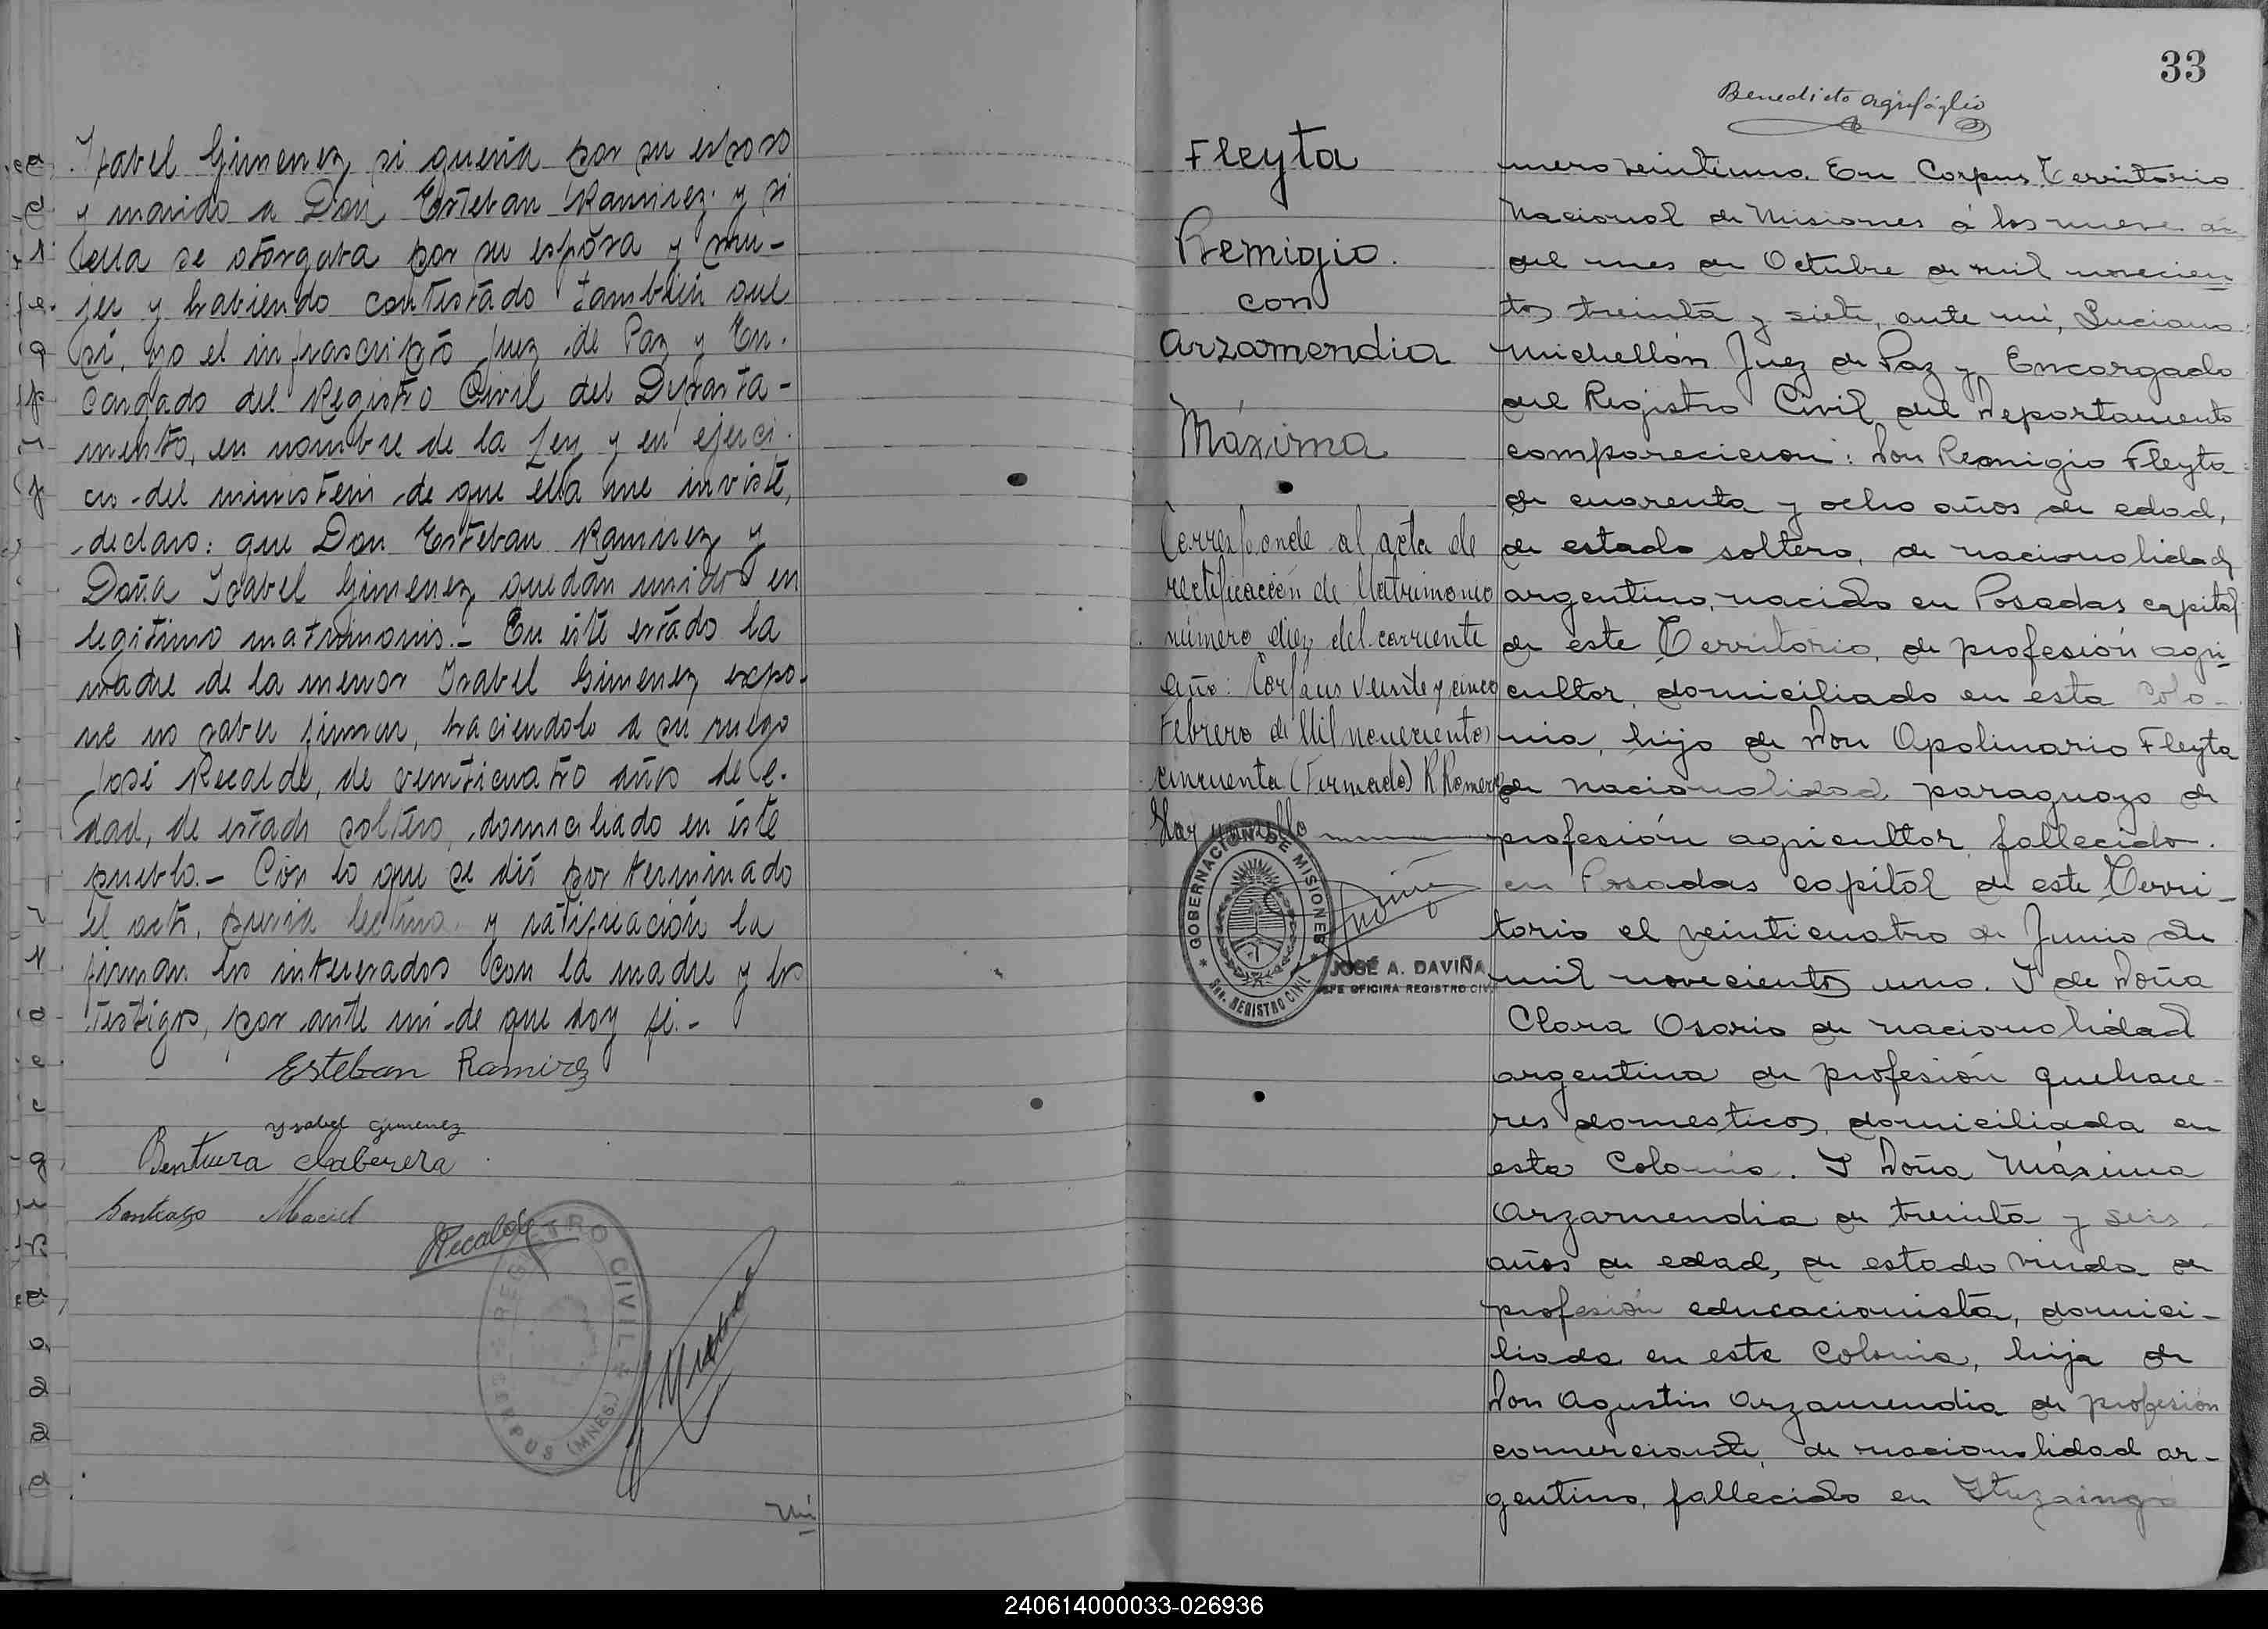 Isabel Gimenez, si queria por su esposo
y marido a Don Esteban Ramirez y si
ella se otorgaba por su esposa y mu-
jer y habiendo contestado tambien que
si, yo el infrascripto Juez de Paz y En-
cargado del Registro Civil del Departa-
mento, en nombre de la Ley y en ejerci-
cio del ministerio de que ella me inviste,
declaro: que Don Esteban Ramirez y
Doña Isabel Gimenez quedan unidos en
legitimo matrimonio.- En este estado la
madre de la menor Isabel Gimenez expo-
ne no saber firmar, haciendolo a su ruego
José Recalde, de veinticuatro años de e-
dad, de estado soltero, domiciliado en éste
pueblo.- Con lo que se dió por terminado
el acto, previa lectura y ratificación la
firman los interesados con la madre y los
testigos, por ante mi de que doy fé.-
Esteban Ramirez
Ysabel Gimenez
Bentura Caberera
Santiago Maciel
Recalde
REGISTRO CIVIL
CORPUS (MNES.)
33
Benedicto Agrifóglio
Fleyta
Remigio.
con
Arzamendia
Máxima
Corresponde al acta de
rectificación de Matrimonio
número diez del corriente
año: Corpus veinte y cinco
Febrero de Mil novecientos
cincuenta (Firmado) R Romero
Hay un sello
GOBERNACION DE MISIONES
REGISTRO CIVIL
JOSÉ A. DAVIÑA
JEFE OFICINA REGISTRO CIVIL
mero veintiuno. En Corpus Territorio
Nacional de Misiones á los nueve
del mes de Octubre de mil novecien
tos treinta y siete, ante mi, Luciano
Michellón Juez de Paz y Encargado
del Registro Civil del Departamento
comparecieron: Don Remigio Fleyta
de cuarenta y ocho años de edad,
de estado soltero, de nacionalidad
argentino, nacido en Posadas capital
de este Territorio, de profesión agri-
cultor, domiciliado en esta Colo-
nia, hijo de Don Apolinario Fleyta
de nacionalidad paraguayo de
profesión agricultor fallecido
en Posadas capital de este Terri-
torio el veinticuatro de Junio de
mil novecientos uno. Y de Doña
Clara Osorio de nacionalidad
argentina de profesión quehace-
res domesticos, domiciliada en
esta Colonia. Y Doña Máxima
Arzamendia de treinta y seis
años de edad, de estado viuda de
profesión educacionista, domici-
liada en esta Colonia, hija de
Don Agustin Arzamendia de profesión
comerciante, de nacionalidad ar-
gentino, fallecido en Ituzaingó
240614000033-026936